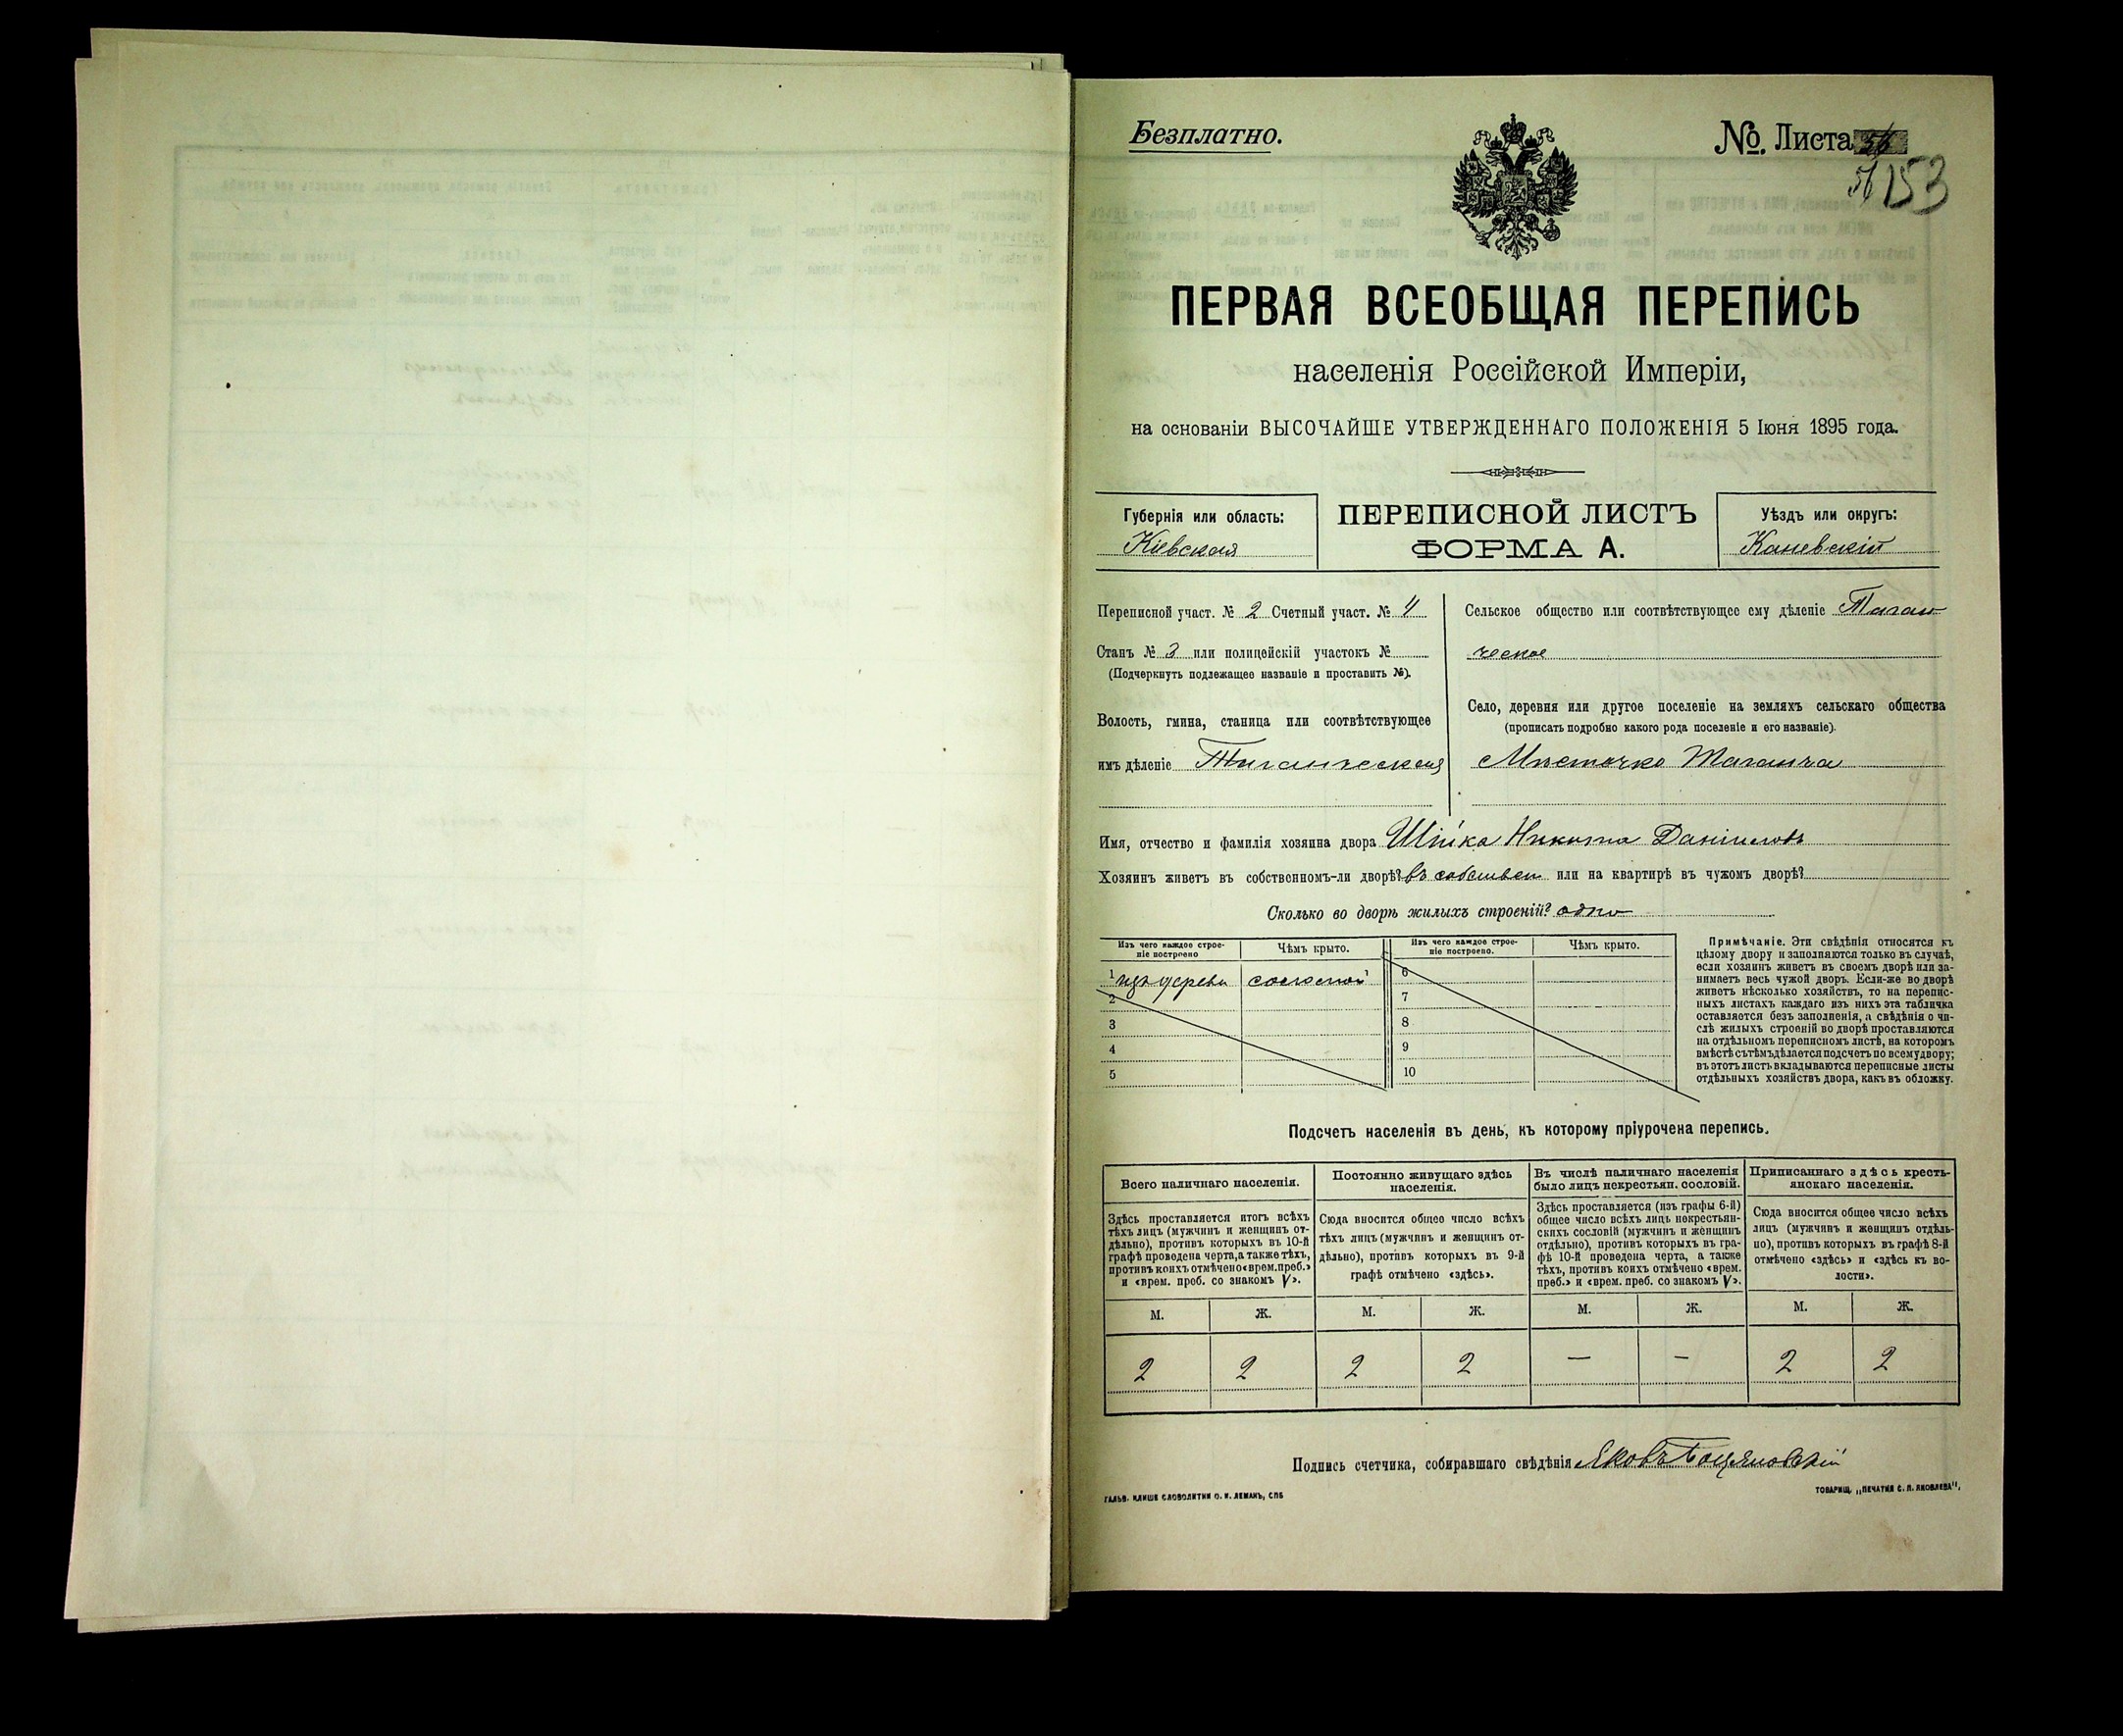 Безплатно.
№. Листа
56 153
ПЕРВАЯ ВСЕОБЩАЯ ПЕРЕПИСЬ
населенія Россійской Имперіи,
на основаніи ВЫСОЧАЙШЕ УТВЕРЖДЕННАГО ПОЛОЖЕНІЯ 5 Іюня 1895 года.
Губернія или область:
Кіевская
ПЕРЕПИСНОЙ ЛИСТЪ
ФОРМА А.
Уѣздъ или округъ:
Каневскій
Переписной участ. № 2 Счетный участ. № 4
Станъ № 3 или полицейскій участокъ №
(Подчеркнуть подлежащее названіе и проставить №).
Волость, гмина, станица или соотвѣтствующее
имъ дѣленіе Таганческая
Сельское общество или соотвѣтствующее ему дѣленіе Таган
ческое
Село, деревня или другое поселеніе на земляхъ сельскаго общества
(прописать подробно какого рода поселеніе и его названіе).
Мѣстечко Таганча
Имя, отчество и фамилія хозяина двора Шпика Никита Даніиловъ
Хозяинъ живетъ въ собственномъ-ли дворѣ? въ собствен или на квартирѣ въ чужомъ дворѣ?
Сколько во дворѣ жилыхъ строеній? одно
Изъ чего каждое строе-
ніе построено
Чѣмъ крыто.
Изъ чего каждое строе-
ніе построено.
Чѣмъ крыто.
1 изъ дерева соломой 6
2 7
3 8
4 9
5 10
Примѣчаніе. Эти свѣдѣнія относятся къ
цѣлому двору и заполняются только въ случаѣ,
если хозяинъ живетъ въ своемъ дворѣ или за-
нимаетъ весь чужой дворъ. Если-же во дворѣ
живетъ нѣсколько хозяйствъ, то на перепис-
ныхъ листахъ каждаго изъ нихъ эта табличка
оставляется безъ заполненія, а свѣдѣнія о чи-
слѣ жилыхъ строеній во дворѣ проставляются
на отдѣльномъ переписномъ листѣ, на которомъ
вмѣстѣ съ тѣмъ дѣлается подсчетъ по всему двору;
въ этотъ листъ вкладываются переписные листы
отдѣльныхъ хозяйствъ двора, какъ въ обложку.
Подсчетъ населенія въ день, къ которому пріурочена перепись.
Всего наличнаго населенія.
Здѣсь проставляется итогъ всѣхъ
тѣхъ лицъ (мужчинъ и женщинъ от-
дѣльно), противъ которыхъ въ 10-й
графѣ проведена черта, а также тѣхъ,
противъ коихъ отмѣчено «врем. преб.»
и «врем. преб. со знакомъ V».
Постоянно живущаго здѣсь
населенія.
Сюда вносится общее число всѣхъ
тѣхъ лицъ (мужчинъ и женщинъ от-
дѣльно), противъ которыхъ въ 9-й
графѣ отмѣчено «здѣсь».
Въ числѣ наличнаго населенія
было лицъ некрестьян. сословій.
Здѣсь проставляется (изъ графы 6-й)
общее число всѣхъ лицъ некрестьян-
скихъ сословій (мужчинъ и женщинъ
отдѣльно), противъ которыхъ въ гра-
фѣ 10-й проведена черта, а также
тѣхъ, противъ коихъ отмѣчено «врем.
преб.» и «врем. преб. со знакомъ V».
Приписаннаго здѣсь кресть-
янскаго населенія.
Сюда вносится общее число всѣхъ
лицъ (мужчинъ и женщинъ отдѣль-
но), противъ которыхъ въ графѣ 8-й
отмѣчено «здѣсь» и «здѣсь къ во-
лости».
М. Ж. М. Ж. М. Ж. М. Ж.
2 2 2 2 — — 2 2
Подпись счетчика, собиравшаго свѣдѣнія Яковъ Боцяновскій
ГАЛЬВ. КЛИШЕ СЛОВОЛИТНИ О. И. ЛЕМАНЪ, СПБ
ТОВАРИЩ. „ПЕЧАТНЯ С. П. ЯКОВЛЕВА",